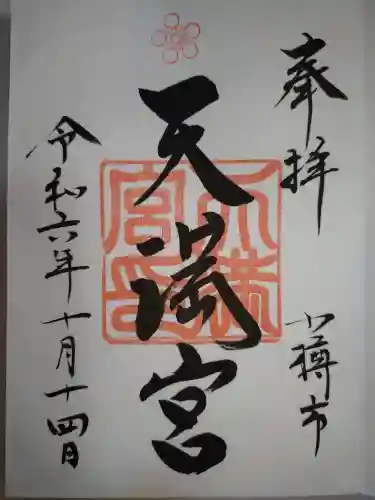 奉拝
小樽市
天満宮
天満宮印
令和六年十月十四日